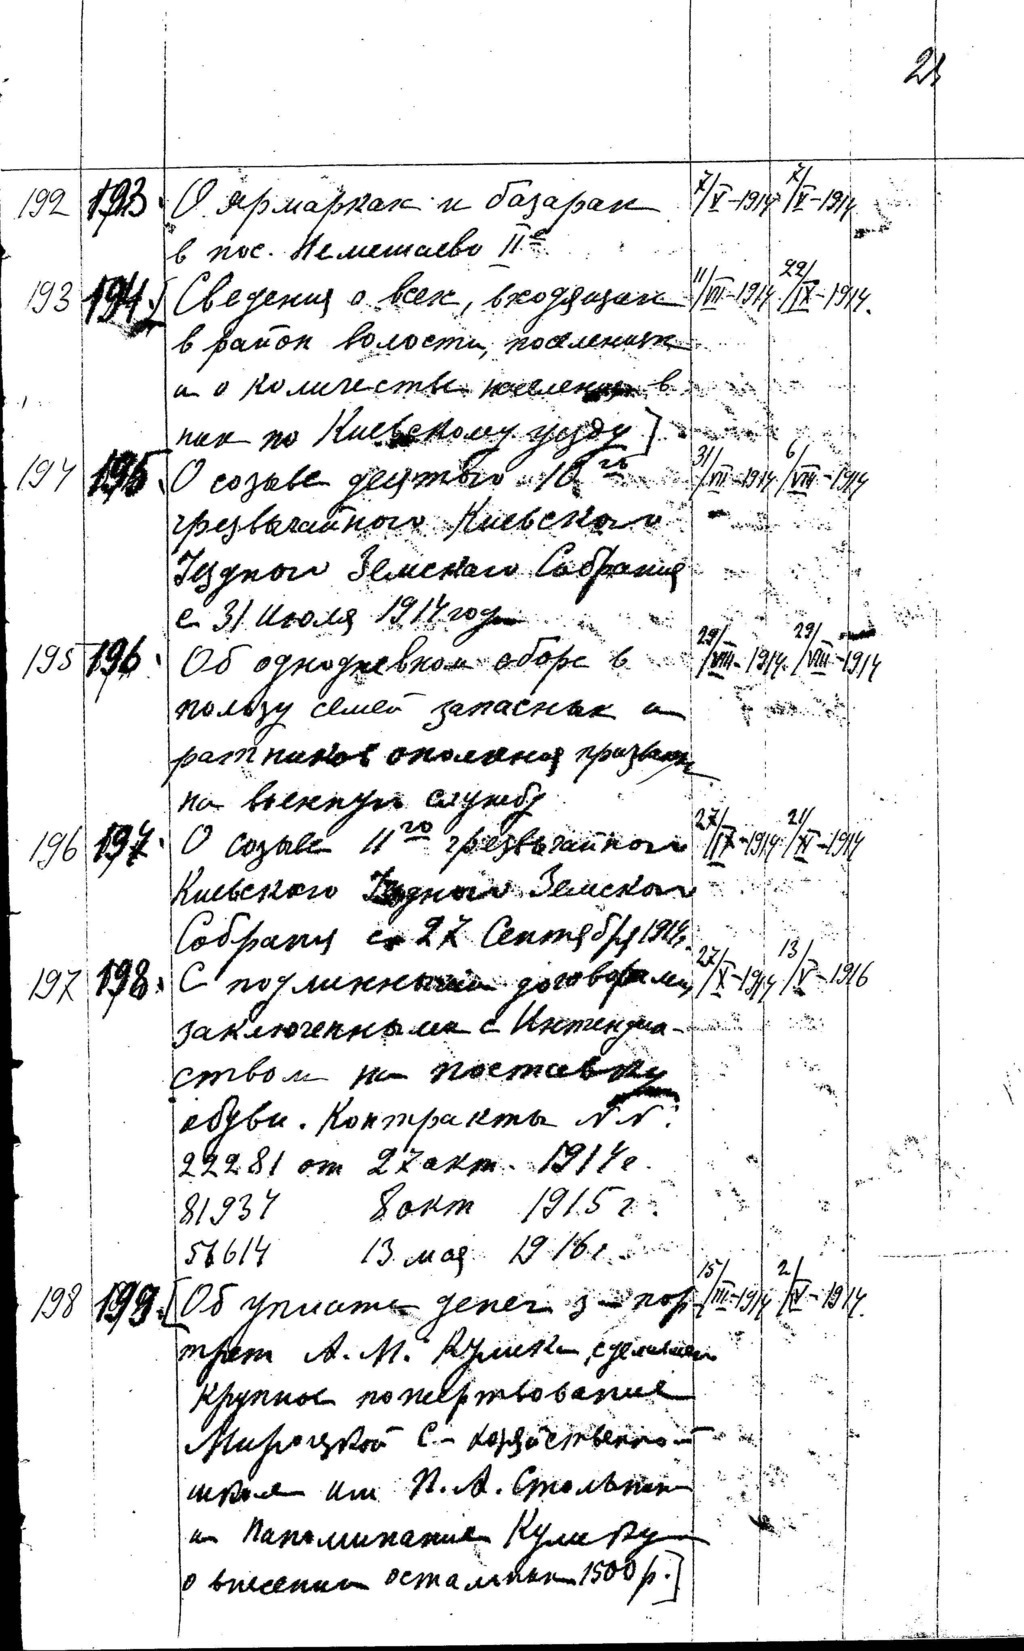 192 193. О ярмарках и базарах 7/V-1914 7/V-1914
в пос. Немешаево II е
193 194. [Сведения о всех, входящих 11/VII-1914 22/IX-1914.
в район волости, поселениях
и о количестве населения в
них по Киевскому уезду]
194 195. О созыве десятого 10 го 31/VII-1914 6/VIII-1914
чрезвычайного Киевского
Уездного Земскаго Собрания
с 31 Июля 1914 год
195 196. Об однодневном сборе в 29/VIII-1914. 29/VIII-1914
пользу семей запасных и
ратников ополчения призван
на военную службу
196 197. О созыве 11 го чрезвычайного 27/IX-1914 24/XI-1914
Киевского Уездного Земского
Собрания с 27 Сентября 1914г.
197 198. С подлинными договорами, 27/X-1914 13/V-1916
заключенными с Интендан-
ством на поставку
обуви. Контракты NN:
22281 от 27 окт. 1914 г.
81934 8 окт 1915 г.
56614 13 мая 1916 г.
198 199. [Об уплате денег за пор- 15/III-1914 2/IV-1914.
трет А. М. Кулика, сделавшего
крупное пожертвование
Мироцкой С-хозяйственной
школе им П. А. Столыпина
и напоминание Кулику
о внесении остальных 1500 р.]